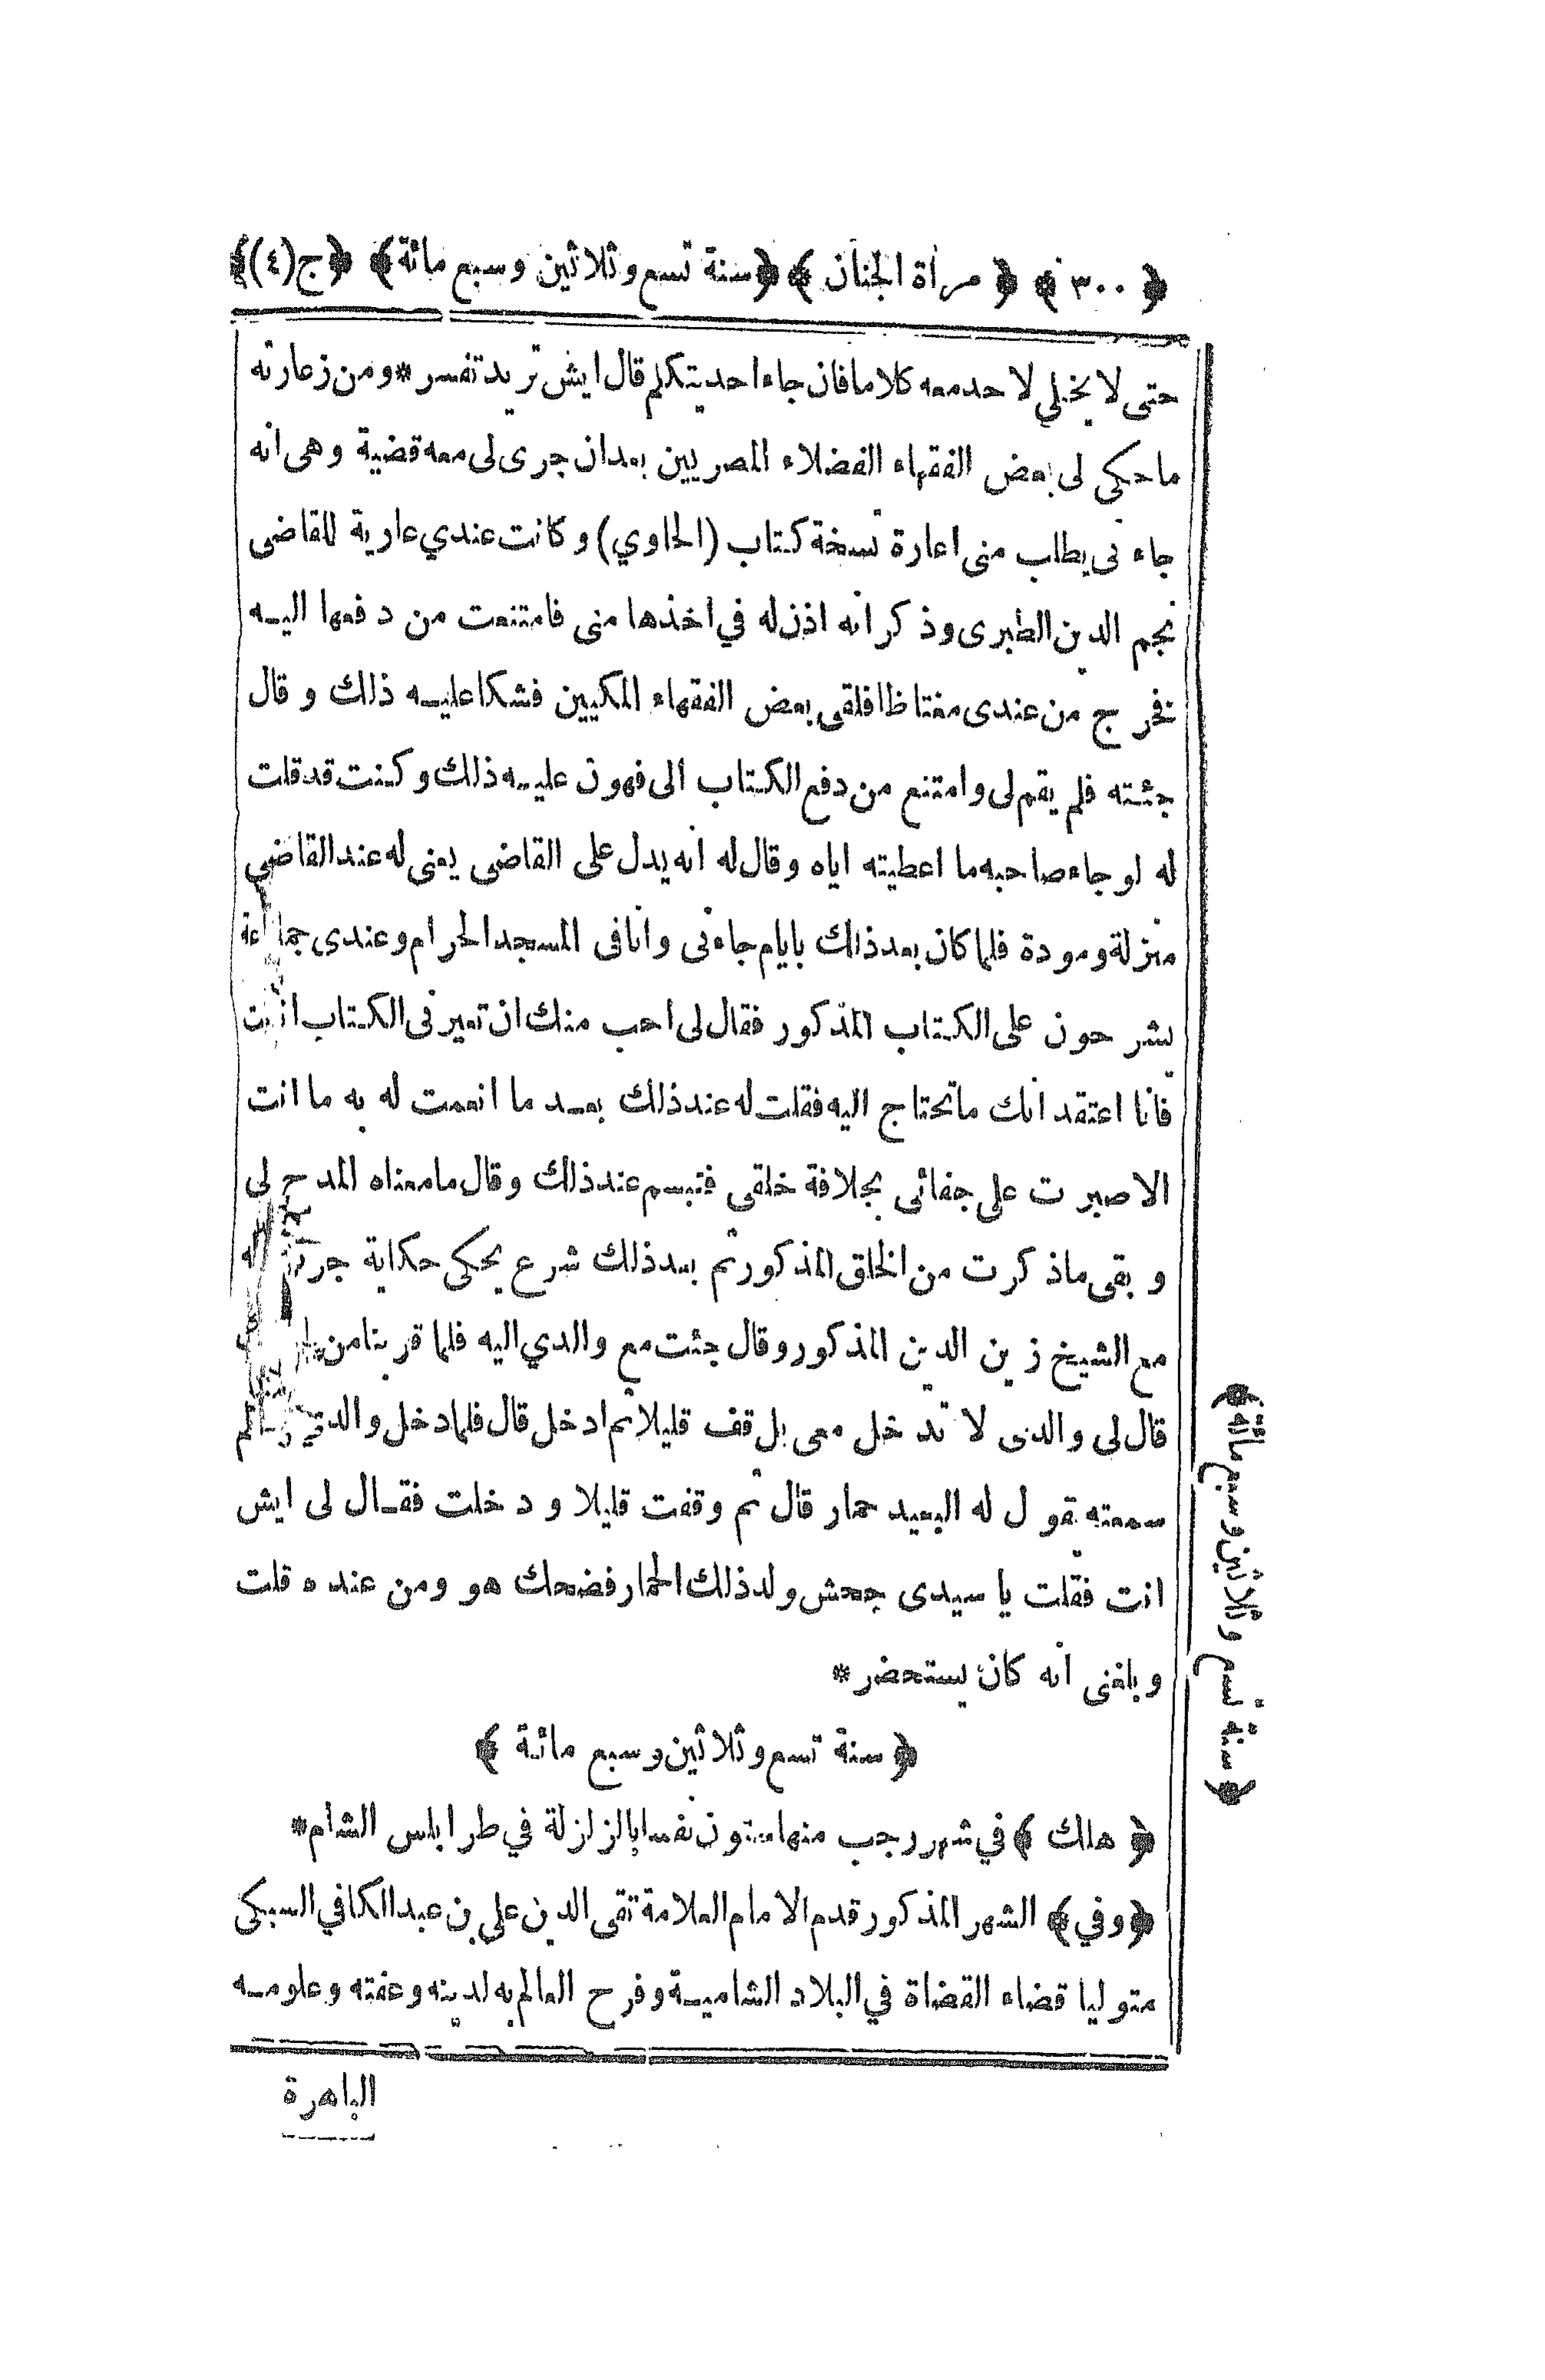 ﴿ ٣٠٠ ﴾ ﴿ مرأة الجنان ﴾ ﴿سنة تسع وثلاثين وسبع مائة﴾ ﴿ج(٤)﴾
حتى لا يخلي لاحد معه كلاما فان جاء احد يتكلم قال ايش تريد تفسر * ومن زعارته
ما حكى لى بعض الفقهاء الفضلاء المصريين بعد ان جرى لى معه قضية وهى انه
جاءنى يطلب منى اعارة نسخة كتاب (الحاوي) وكانت عندي عارية للقاضى
نجم الدين الطبرى وذكر انه اذن له في اخذها منى فامتنعت من دفعها اليه
نخرج من عندى مغتاظا فلقى بعض الفقهاء المكيين فشكا عليه ذلك وقال
جئته فلم يقم لى وامتنع من دفع الكتاب الى فهون عليه ذلك وكنت قد قلت
له لو جاء صاحبه ما اعطيته اياه وقال له انه يدل على القاضى يعنى له عند القاضي
منزلة ومودة فلما كان بعد ذلك بايام جاءنى وانا فى المسجد الحرام وعندى جماعة
يشرحون على الكتاب المذكور فقال لى احب منك ان تعيرنى الكتاب انت
فانا اعتقد انك ما تحتاج اليه فقلت له عند ذلك بعد ما انعمت له به ما انت
الا صبرت على جفائى بجلافة خلقى فتبسم عند ذلك وقال ما معناه المدح لى
وبقى ماذكرت من الخلق المذكور ثم بعد ذلك شرع يحكى حكاية جرت له
مع الشيخ زين الدين المذكور وقال جئت مع والدي اليه فلما قربنا من
قال لى والدى لا تدخل معى بل قف قليلا ثم ادخل قال فلما دخل والدى
سمعته يقول له البعيد حمار قال ثم وقفت قليلا ودخلت فقال لى ايش
انت فقلت يا سيدى جحش ولد ذلك الحمار فضحك هو ومن عنده قلت
وبلغنى انه كان يستحضر *
﴿ سنة تسع وثلاثين وسبع مائة ﴾
﴿ هلك ﴾ في شهر رجب منها ستون نفسا بالزلزلة في طرابلس الشام *
﴿وفي﴾ الشهر المذكور قدم الامام العلامة تقى الدين على بن عبد الكافي السبكى
متوليا قضاء القضاة في البلاد الشامية وفرح العالم به لدينه وعفته وعلومه
الباهرة
﴿سنة تسع وثلاثين وسبع مائة﴾